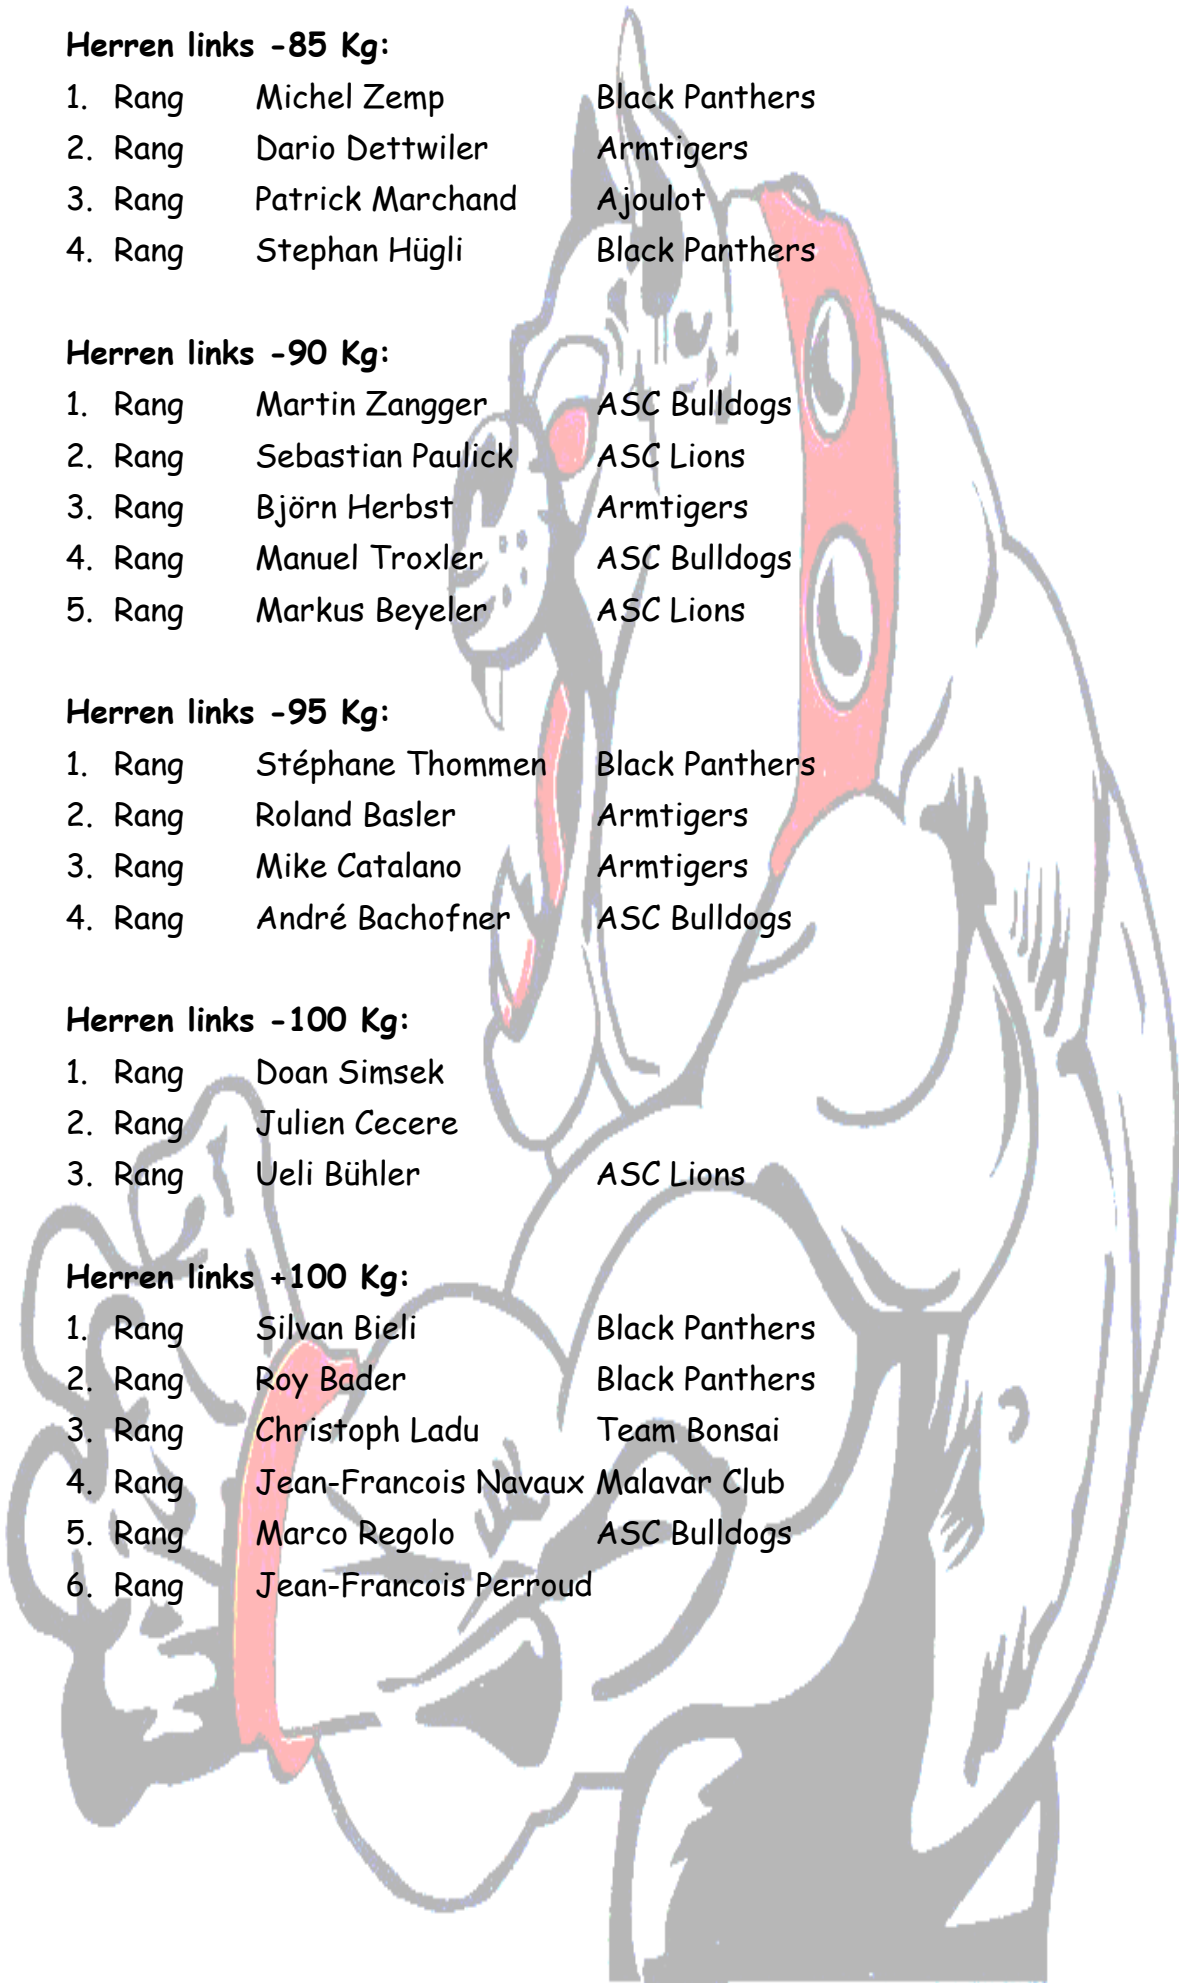 Herren links -85 Kg:
1. Rang Michel Zemp Black Panthers
2. Rang Dario Dettwiler Armtigers
3. Rang Patrick Marchand Ajoulot
4. Rang Stephan Hügli Black Panthers
Herren links -90 Kg:
1. Rang Martin Zangger ASC Bulldogs
2. Rang Sebastian Paulick ASC Lions
3. Rang Björn Herbst Armtigers
4. Rang Manuel Troxler ASC Bulldogs
5. Rang Markus Beyeler ASC Lions
Herren links -95 Kg:
1. Rang Stéphane Thommen Black Panthers
2. Rang Roland Basler Armtigers
3. Rang Mike Catalano Armtigers
4. Rang André Bachofner ASC Bulldogs
Herren links -100 Kg:
1. Rang Doan Simsek
2. Rang Julien Cecere
3. Rang Ueli Bühler ASC Lions
Herren links +100 Kg:
1. Rang Silvan Bieli Black Panthers
2. Rang Roy Bader Black Panthers
3. Rang Christoph Ladu Team Bonsai
4. Rang Jean-Francois Navaux Malavar Club
5. Rang Marco Regolo ASC Bulldogs
6. Rang Jean-Francois Perroud